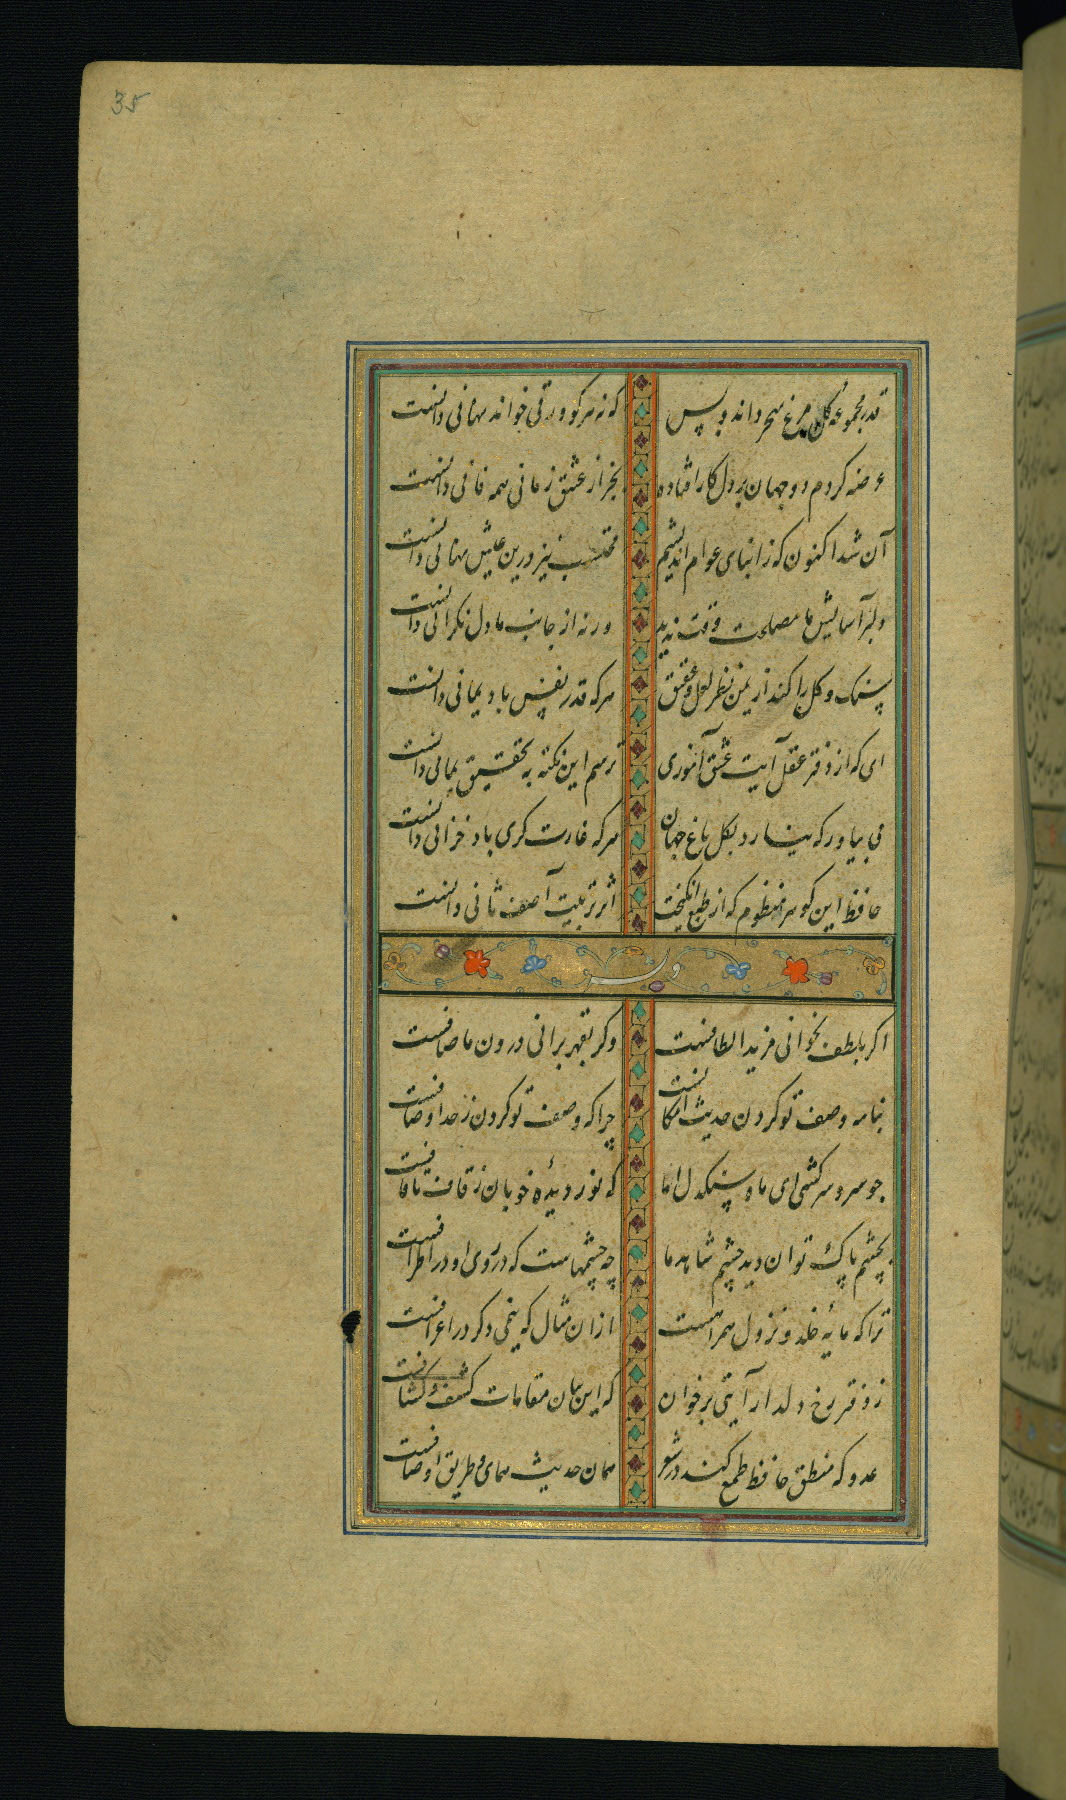 35
قدر مجموعه کل مرغ سحر داند و بس که نه هر کو ورقی خواند معانی دانست
عرضه کردم دو جهان بر دل کار افتاده بجز از عشق تو باقی همه فانی دانست
آن شد اکنون که ز ابنای عوام اندیشم محتسب نیز درین عیش نهانی دانست
دلبر آسایش ما مصلحت وقت ندید ورنه از جانب ما دل نکرانی دانست
سنک و کل را کند از یمن نظر لعل و عقیق هر که قدر نفس باد یمانی دانست
ای که از دفتر عقل آیت عشق آموزی ترسم این نکته به تحقیق ندانی دانست
می بیاور که ننازد بکل باغ جهان هر که غارت کری باد خزانی دانست
حافظ این کوهر منظوم که از طبع انکیخت اثر تربیت آصف ثانی دانست
وله
اکر بلطف بخوانی مزید الطافست وکر بقهر برانی درون ما صافست
بنامه وصف تو کردن حدیث امکانست چرا که وصف تو کردن ز حد اوصافست
چو سرو سرکشی ای ماه سنکدل اما که نور دیده خوبان ز قاف تا قافست
بچشم پاک توان دید چشم شاهد ما چه چشمهاست که در روی او در اطرافست
ترا که مایه خلد و نزول همراهست ازان مثال که بنمی دکر در اعرافست
ز دفتر رخ دلدار آیتی برخوان که این بیان مقامات کشف و کشافست
عدو که منطق حافظ طمع کند در شعر همان حدیث همای و طریق اوصافست